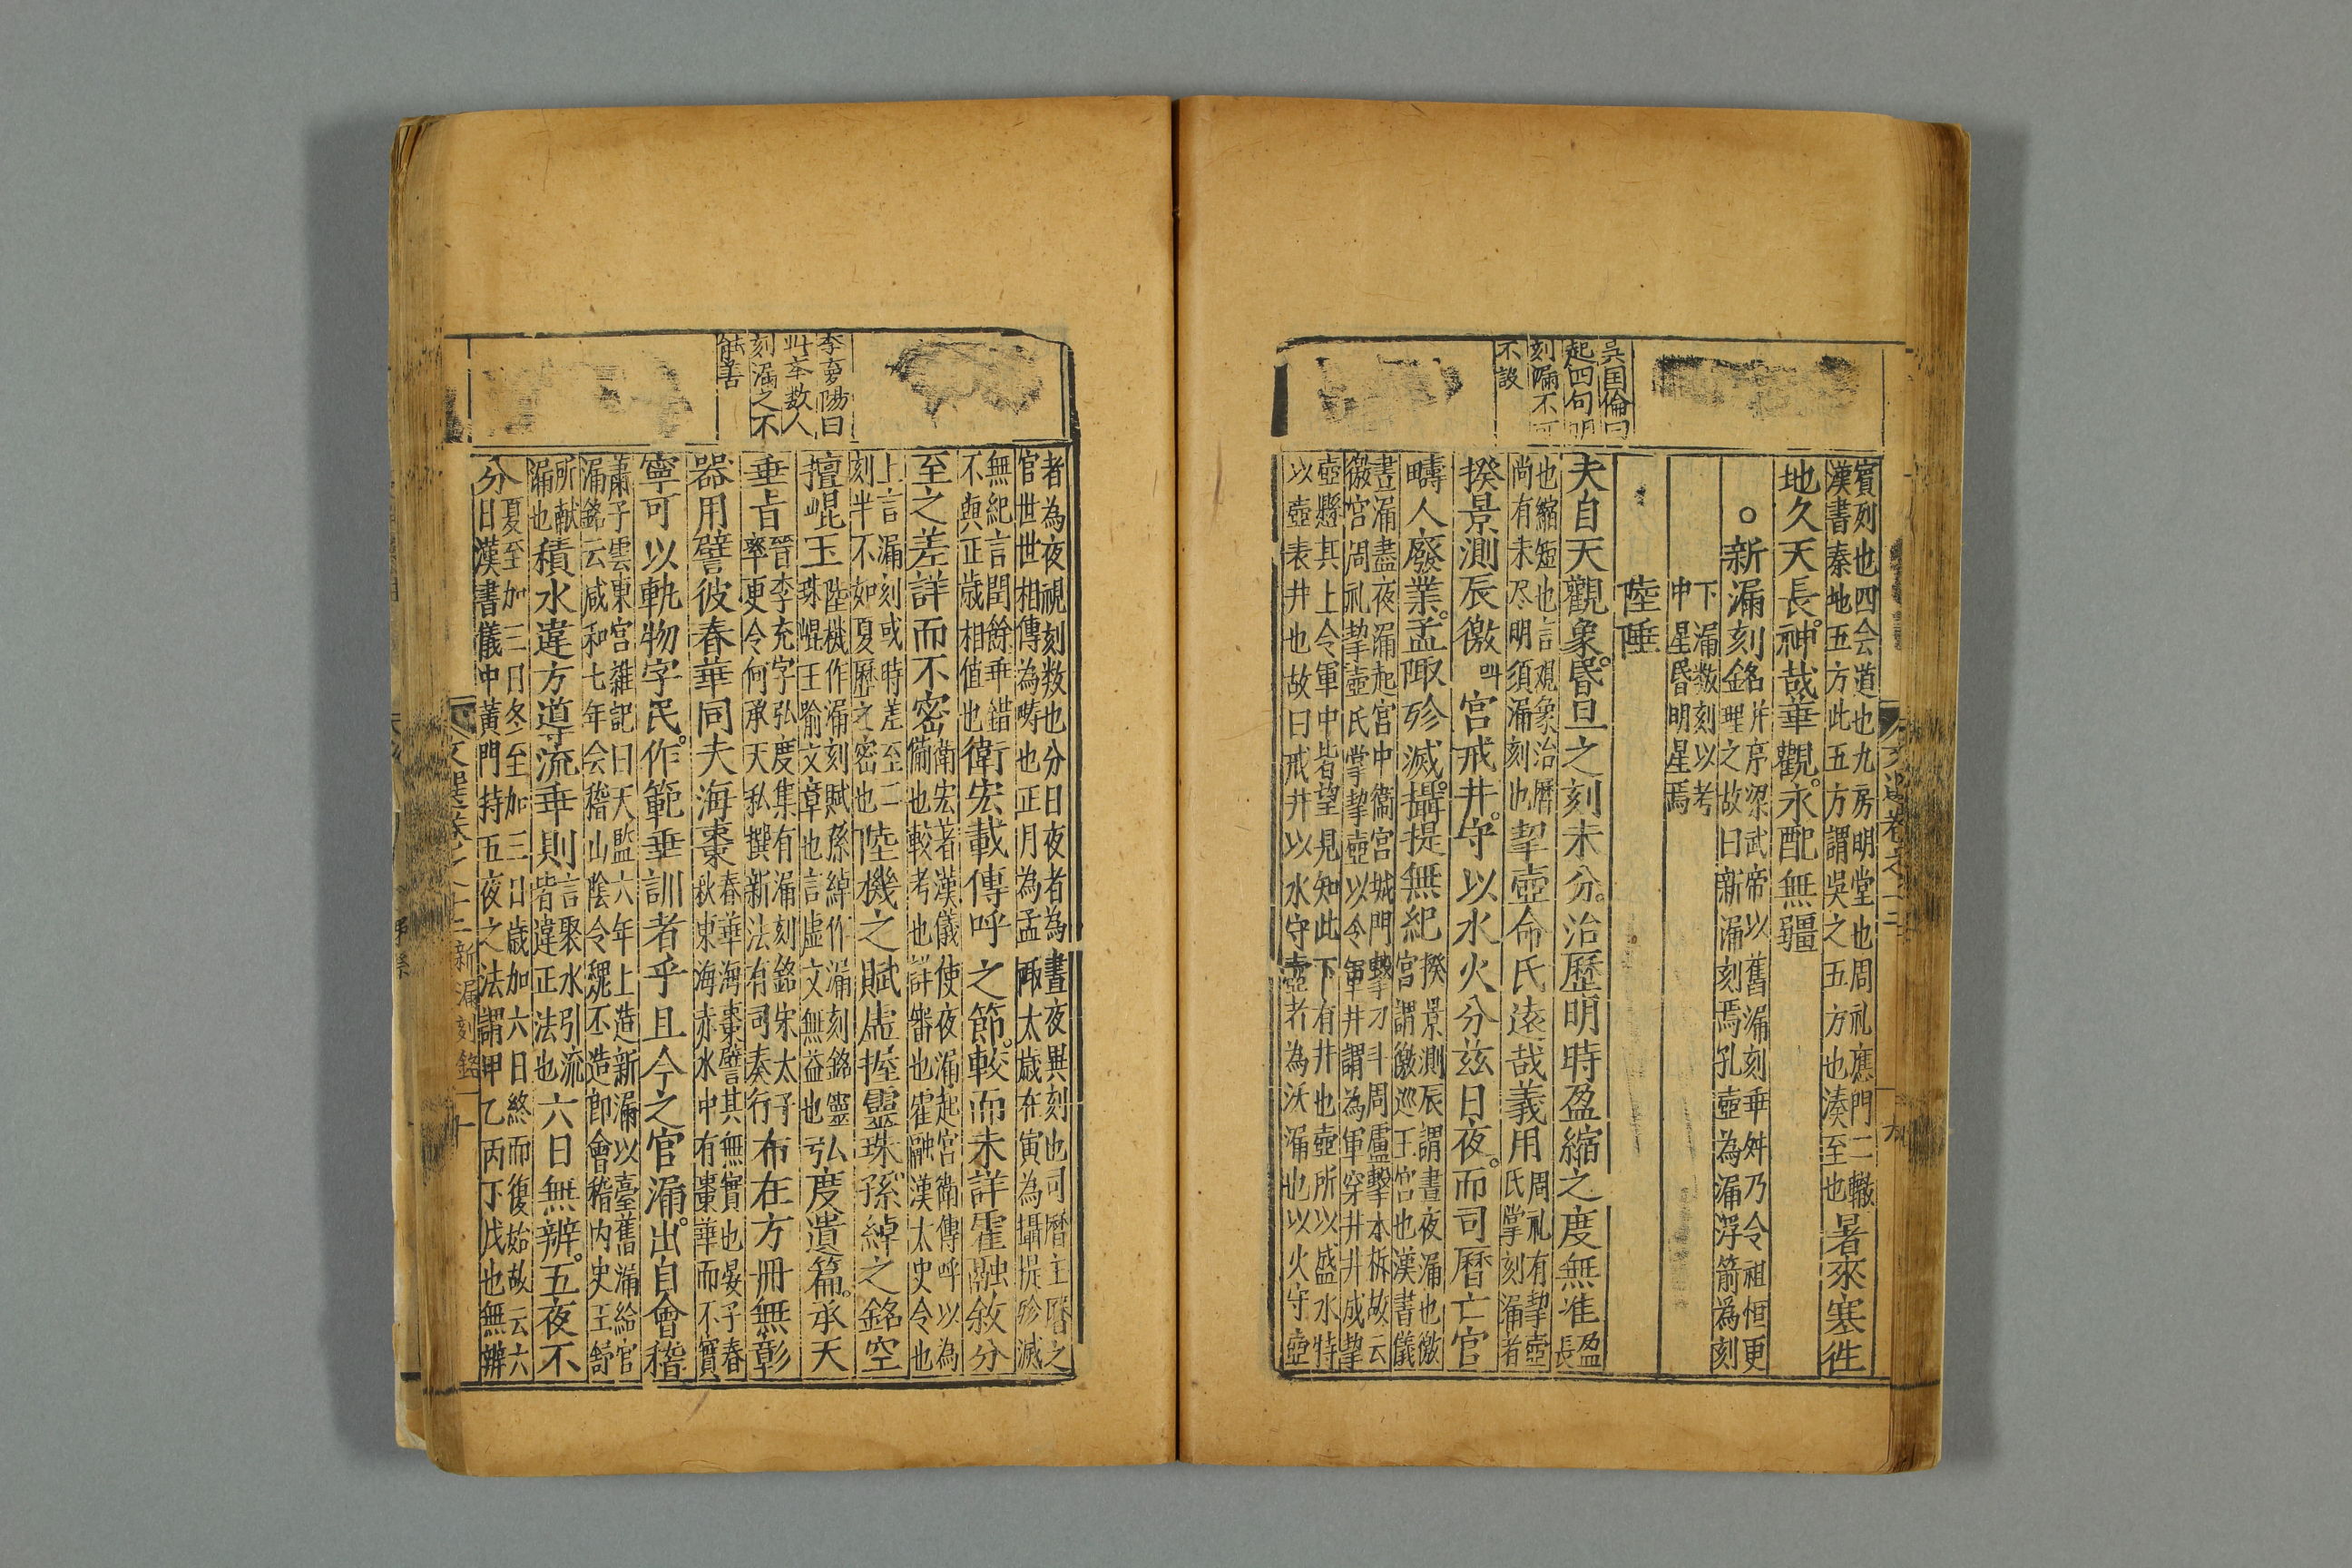 吳国倫曰
起四句明
刻漏不可
不設
賔列也四会道也九房明堂也周礼應門二轍
漢書秦地五方此五方謂吳之五方也湊至也暑來寒徃
地久天長神哉華觀永配無疆
○新漏刻銘并序梁武帝以舊漏刻垂舛乃令祖恒更
理之故曰新漏刻焉孔壺為漏浮箭為刻
下漏数刻以考
中星昏明星焉
陸陲
夫自天觀象昏旦之刻未分治歷明時盈縮之度無准盈
長
也縮短也言覌象治曆
尚有未尽明須漏刻也挈壺命氏遠哉義用周礼有挈壺
氏掌刻漏者
揆景測辰徼叫宮戒井守以水火分兹日夜而司曆亡官
疇人廢業孟陬殄滅攝提無紀揆景測辰謂晝夜漏也徼
宮謂徼巡王宮也漢書儀
晝漏盡夜漏起宮中衛宮城門擊刁斗周廬擊木柝故云
徼宮周礼挈壺氏掌挈壺以令軍井謂為軍穿井井成挈
壺懸其上令軍中皆望見知此下有井也壺所以盛水特
以壺表井也故曰戒井以水守壺者為沃漏也以火守壺
李夢陽曰
此举数人
刻漏之不
能善
者為夜視刻数也分日夜者為晝夜異刻也司曆主曆之
官世世相傳為疇也正月為孟陬太歲在寅為攝提殄滅
無紀言閏餘乖錯
不與正歲相值也衛宏載傳呼之節較而未詳霍融敘分
至之差詳而不密衛宏著漢儀使夜漏起宮衛傳呼以為
備也較考也詳審也霍融漢太史令也
上言漏刻或時差至二
刻半不如夏曆之密也陸機之賦虛握靈珠孫綽之銘空
擅崐玉陸機作漏刻賦孫綽作漏刻銘靈
珠崐玉喻文章也言虛文無益也弘度遺篇承天
垂旨晉李充字弘度集有漏刻銘宋太子
率更令何承天私撰新法有司奏行布在方冊無彰
器用譬彼春華同夫海棗春華海棗譬其無實也晏子春
秋東海赤水中有棗華而不實
寧可以軌物字民作範垂訓者乎且今之官漏出自會稽
蕭子雲東宮雜記曰天監六年上造新漏以臺舊漏給官
漏銘云咸和七年会稽山陰令魏丕造即會稽內史王舒
所献
漏也積水違方導流乖則言聚水引流
皆違正法也六日無辨五夜不
分夏至加三日冬至加三日歲加六日終而復始故云六
日漢書儀中黃門持五夜之法謂甲乙丙丁戊也無辨
文選卷之二十二新漏刻銘